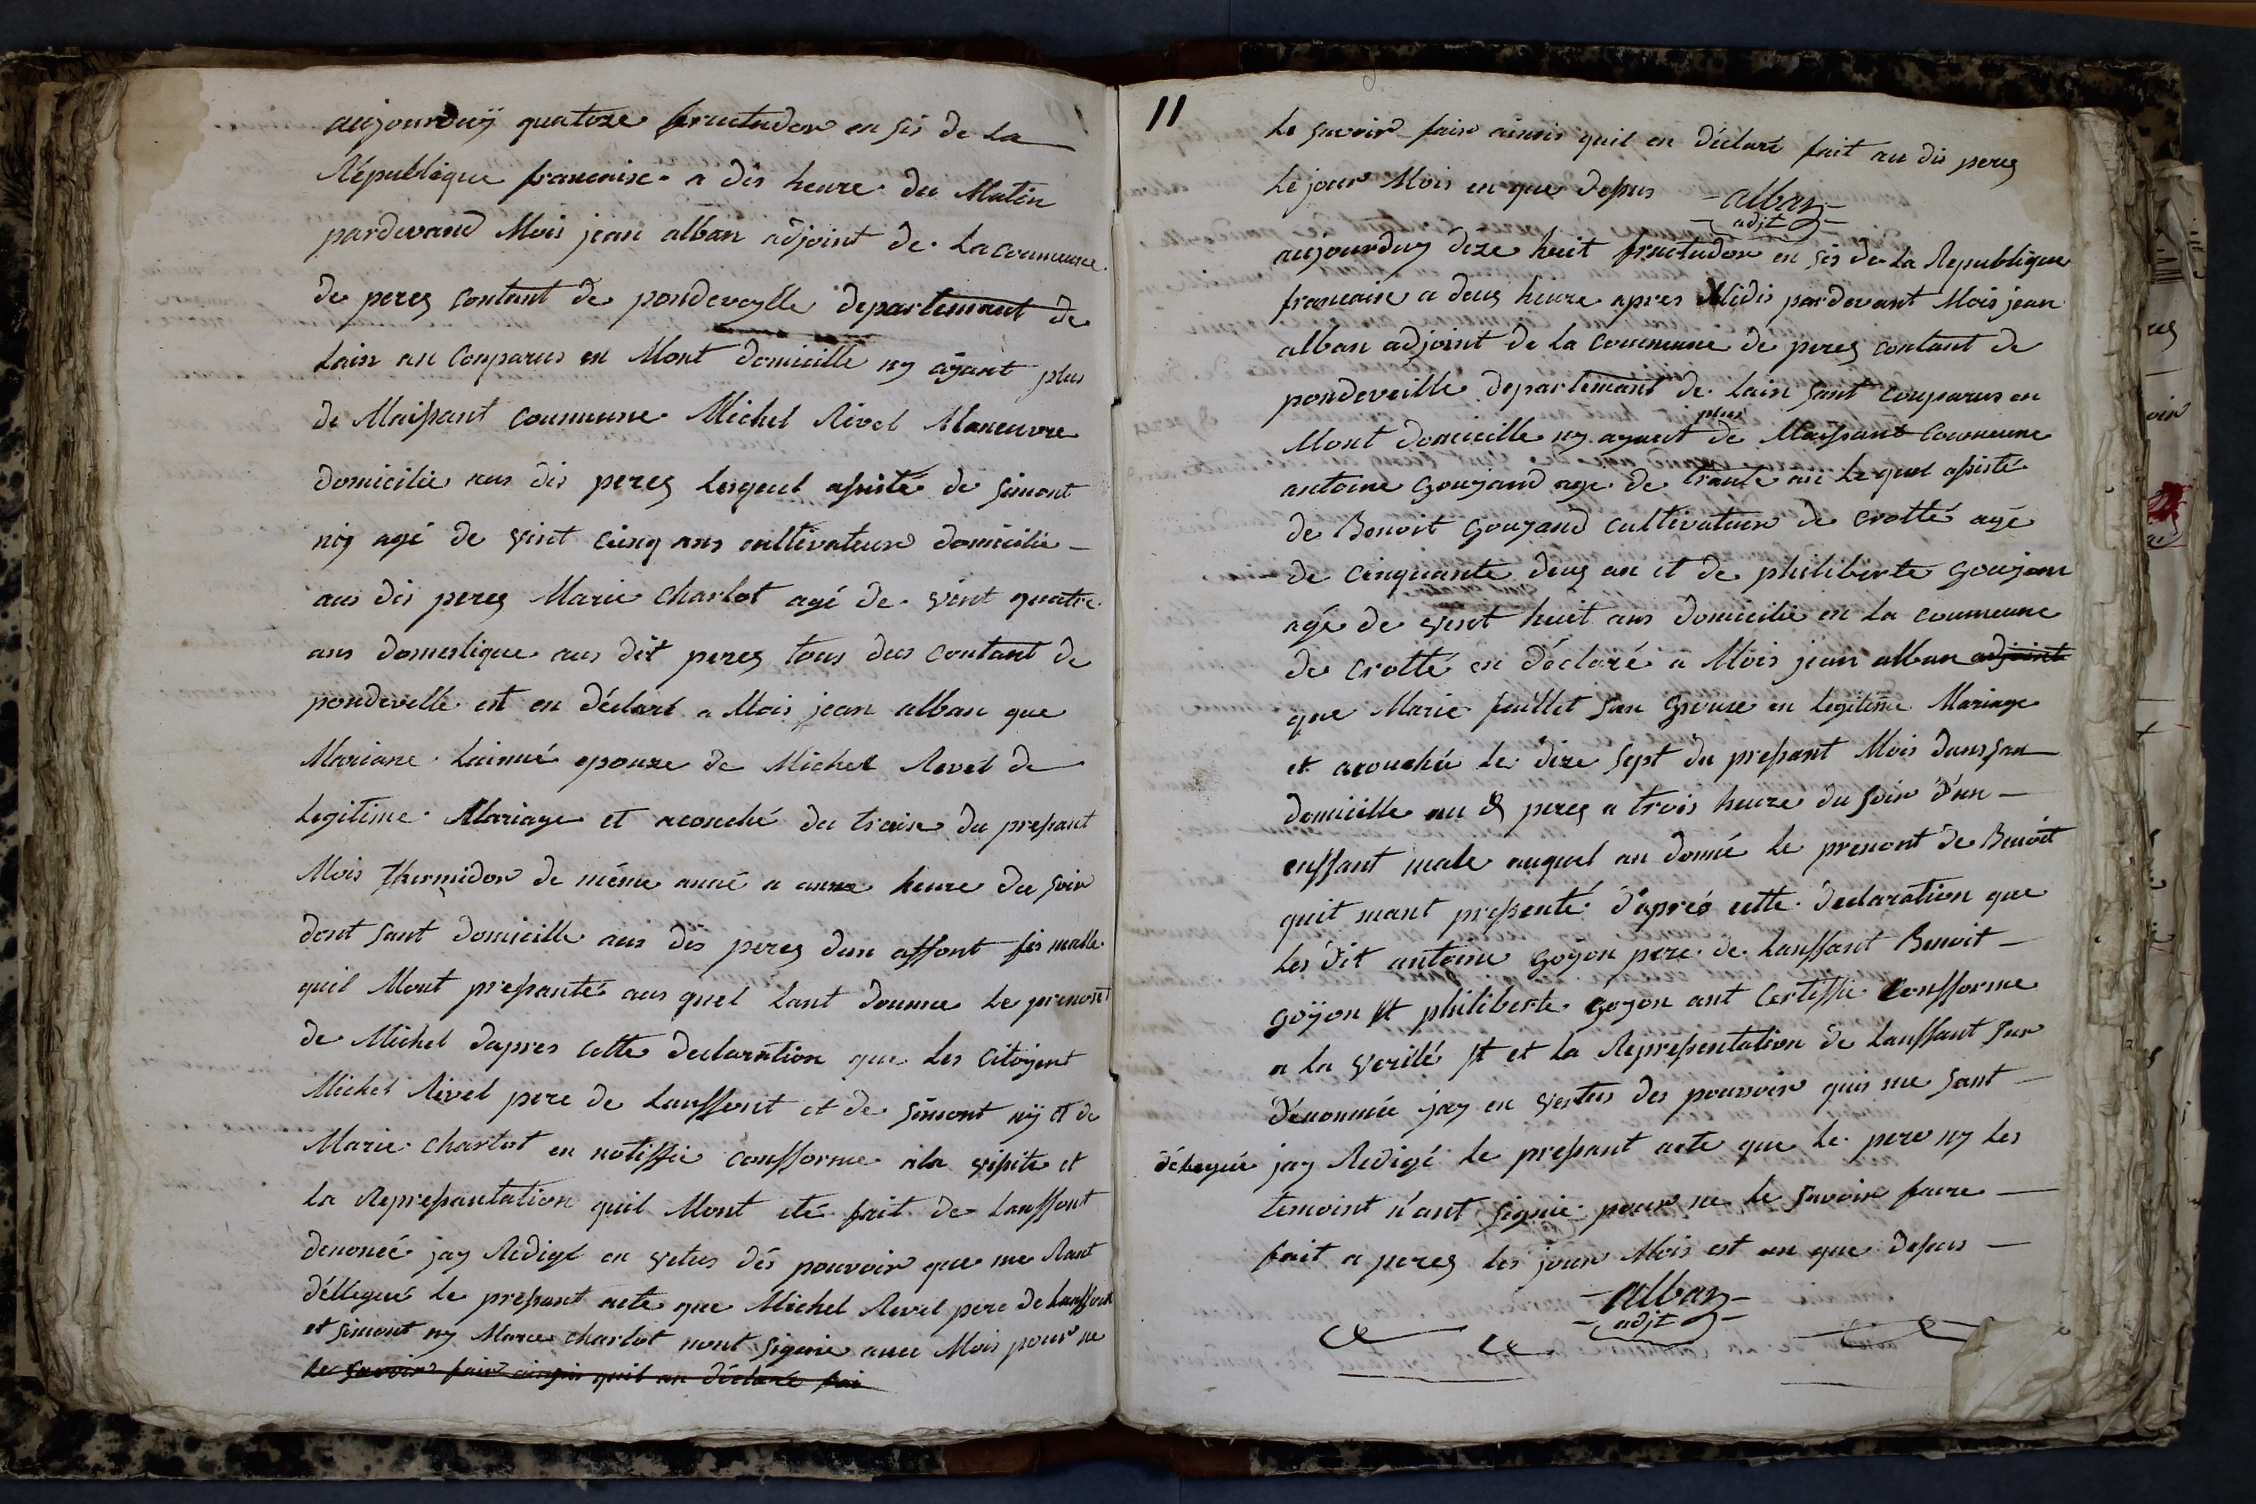 aujourduÿ quatoze fructudor en sis de la
République francaise a dis heure du Matin
pardevand Mois jean alban adjoint de la commune
de perez contant de pondeveylle departement de
lain an conparus en Mont domicille ny aÿant plus
de Maissant commune Michel Rivel Maneuvre
domicilié aus dis perez lesquel assisté de simont
niÿ agé de vint cainq ans cultivateur domicilie
aus dis perez Marie Charlot agé de vint quatre
ans domestique aus dit perez tous deus contant de
pondevelle est en déclaré a Mois jean alban que
Mariane lainné epouze de Michel Revel de
legitime Mariage et acouché du traise du pressant
Mois thermidor de même anné a heure du soir
dont sant domicille aus dis perez dun affont fis malle
quil Mont pressanté aus quel lant doune le prenont
de Michel dapres cette declaration que les citoyent
Michel Revel pere de lanffont et de simont nÿ et de
Marie Charlot en notiffié confforme a la visite et
la Repressantation quil Mont eté fait de lanffont
denoncé jay Redigé en vetus dés pouvoir que me sant
déllegué le pressant acte que Michel Revel pere de lanffont
et simont ny Marie Charlot nont signié avec Mois pour ne
le savoir fair ainsis quil an déclaré fai
11
le savoir fair ainsis quil en déclaré fait au dis perez
le jour Mois en que dessus alban
adjt
aujourduy dize huit fructudor en sis de la Republique
francaise a deuz heure apres Midis pardevant Mois jean
alban adjoint de la commune de perez contant de
pondeveille departemant de lain sant conparus en
plus
Mont domicille ny ayant de Maissant commune
antoine goujand age de trante ans lequel assisté
de Benoit goujand cultivateur de crotté agé
de cinquante deuz an et de philiberte goujon
agé de vint huit ans domicilié en la commune
de crotté en déclaré a Mois jean alban adjoint
que Marie feuillet san epouse en legitime Mariage
et acouchée le dize sept du pressant Mois dans san
domicille au d perez a trois heure du soir d'un
enffant male auquel an donné le prenont de Benoit
quit mant pressenté d'aprés cette declaration que
les dit antoine goÿon pere de lanffant Benoit
goÿon et philiberte goyon ant certiffié confforme
a la verité et et la Repressentation de lanffant sur
dénommée jay en vertus des pouvoir quis me sant
délegué jay Redigé le pressant acte que le pere ny les
temoint n'ant signié pour ne le savoir faire
fait a perez les jour Mois est an que dessus
alban
adjt